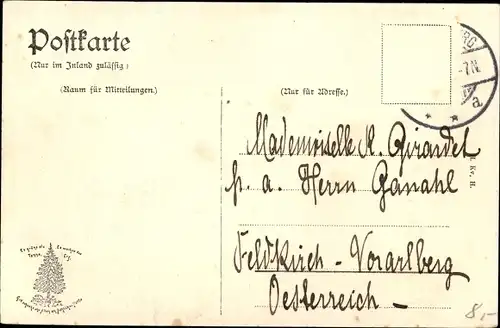 Postkarte
(Nur im Inland zulässig)
(Raum für Mitteilungen.)
(Nur für Adresse.)
-7N.
a
Mademoiselle K. Girardet
p. a. Herrn Ganahl
Feldkirch - Vorarlberg
Oesterreich -
Kr. H.
8,-